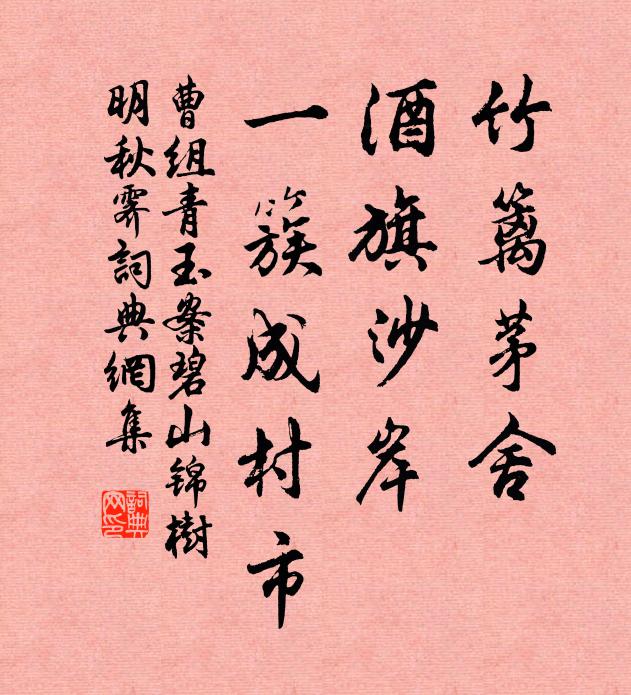 竹篱茅舍
酒旗沙岸
一簇成村市
曹组青玉案碧山锦樹
明秋霽詞典網集
詞典网印